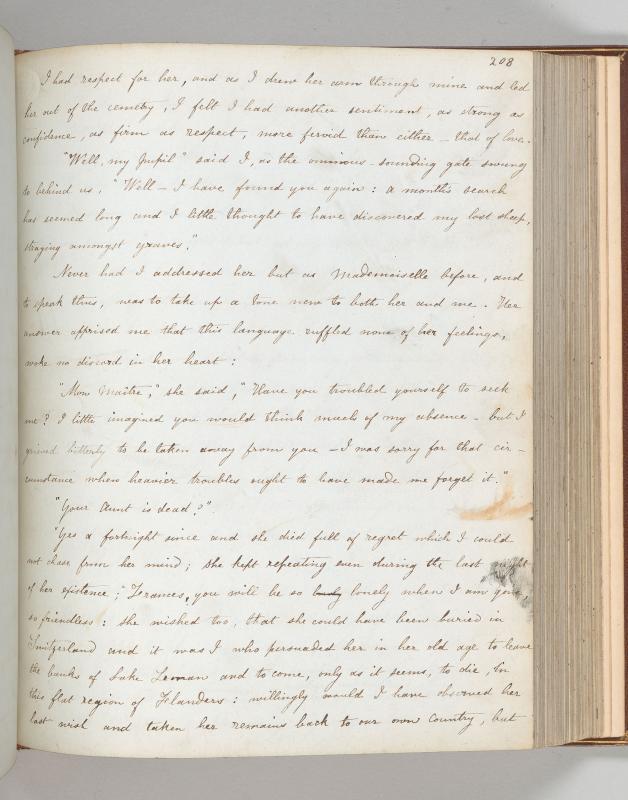 208
I had respect for her, and as I drew her arm through mine and led
her out of the cemetry, I felt I had another sentiment, as strong as
confidence, as firm as respect, more fervid than either - that of love.
"Well, my pupil" said I, as the ominous-sounding gate swung
to behind us, "Well - I have found you again : a month's search
has seemed long and I little thought to have discovered my lost sheep,
straying amongst graves."
Never had I addressed her but as Mademoiselle before, and
to speak thus, was to take up a tone new to both her and me. Her
answer apprised me that this language ruffled none of her feelings,
woke no discord in her heart :
"Mon Maître," she said, "Have you troubled yourself to seek
me? I little imagined you would think much of my absence - but I
grieved bitterly to be taken away from you - I was sorry for that cir-
cumstance when heavier troubles ought to have made me forget it."
"Your Aunt is dead?"
"Yes a fortnight since and she died full of regret which I could
not chase from her mind ; she kept repeating even during the last night
of her existence ; "Frances, you will be so lonely lonely when I am gone,
so friendless : she wished too, that she could have been buried in
Switzerland and it was I who persuaded her in her old age to leave
the banks of Lake Leman and to come, only as it seems, to die, in
this flat region of Flanders : willingly would I have observed her
last wish and taken her remains back to our own Country, but